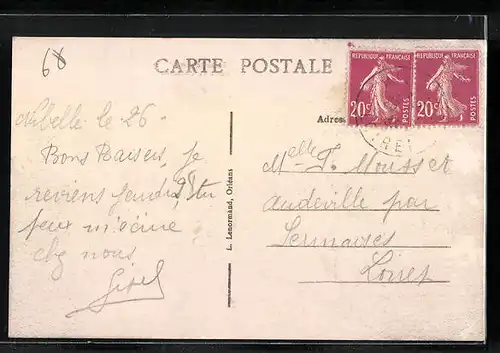 68
CARTE POSTALE
REPUBLIQUE FRANÇAISE
20c
POSTES
REPUBLIQUE FRANÇAISE
20c
POSTES
Adres
RET
le 26
Bons Baisers, Je
reviens jeudi 28 tu
peux m'écrire
chez nous
L. Lenormand, Orléans
Melle Mousset
Audeville par
Sermaises
Loiret